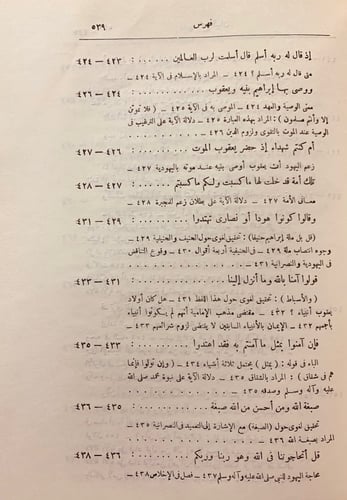 فهرس ٥٣٩
إذ قال له ربه أسلم قال أسلمت لرب العالمين . . . . . . : ٤٢٣ — ٤٢٤
متى قال له ربه أسلم ؟ ٤٢٤ ـ المراد بالإسلام فى الآية ٤٢٤ ـ
ووصى بها إبراهيم بنيه ويعقوب . . . . . . . . . . . : ٤٢٤ — ٤٢٦
معنى الوصية والعهد ٤٢٤ ـ الموصى به فى الآية ٤٢٥ ـ ( فلا تموتن
إلا وأنتم مسلمون ) : المراد بهذه العبارة ٤٢٥ ـ دلالة الآية على الترغيب فى
الوصية عند الموت بالتقوى ولزوم الدين ٤٢٦ ـ
أم كنتم شهداء إذ حضر يعقوب الموت . . . . . . . . : ٤٢٦ — ٤٢٧
زعم اليهود أن يعقوب أوصى بنيه عند موته باليهودية ٤٢٧ ـ
تلك أمة قد خلت لها ما كسبت ولكم ما كسبتم . . . . . : ٤٢٧ — ٤٢٨
معانى الأمة ٤٢٧ ـ دلالة الآية على بطلان زعم لمجبرة ٤٢٨ ـ
وقالوا كونوا هودا أو نصارى تهتدوا . . . . . . . . : ٤٢٩ — ٤٣١
(قل بل ملة إبراهيم حنيفا) : تحقيق لغوى حول العنيف والحنيفية ٤٢٩ ـ
وجه انتصاب ملة ٤٢٩ ـ فى الحنيفية أربعة أقوال ٤٣٠ ـ وقوع التناقض
فى اليهودية والنصرانية ٤٣١ ـ
قولوا آمنا بالله وما أنزل إلينا . . . . . . . . . . : ٤٣١ — ٤٣٣
( والأسباط ) : تحقيق لغوى حول هذا اللفظ ٤٣١ ـ هل كان أولاد
يعقوب أنبياء ؟ ٤٣٢ ـ مقتضى مذهب الإمامية أنهم لم يكونوا أنبياء
بأجمعهم ٤٣٢ ـ الإيمان بالأنبياء السابقين لا يقتضى لزوم شرائعهم ٤٣٣ ـ
فإن آمنوا بمثل ما آمنتم به فقد اهتدوا . . . . . . . : ٤٣٣ — ٤٣٥
الباء فى قوله : ( بمثل ) يحتمل ثلاثة أشياء ٤٣٤ ـ ( وإن تولوا فإنما
هم فى شقاق ) : المراد بالشقاق ٤٣٥ ـ دلالة الآية على نبوة محمد صلى الله
عليه وآله وسلم وصدقه ٤٣٥ ـ
صبغة الله ومن أحسن من الله صبغة . . . . . . . . . : ٤٣٥ — ٤٣٦
تحقيق لغوى حول (الصبغة) مع الإشارة إلى التعميد فى النصرانية ٤٣٥ ـ
المراد بصبغة الله ٤٣٦ ـ
قل أتحاجوننا فى الله وهو ربنا وربكم . . . . . . . . : ٤٣٦ — ٤٣٨
محاجة اليهود للنبى صلى الله عليه وآله وسلم ٤٣٧ ـ فصل فى الإخلاص ٤٣٨ ـ